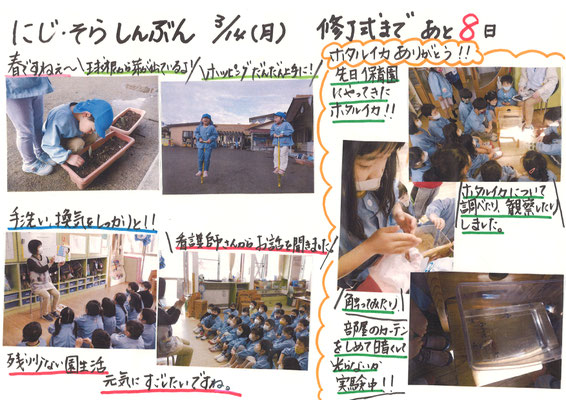 にじ・そら しんぶん 3/14(月)
修了式まで あと 8日
春ですねぇ〜
球根から芽が出ているよ
ホッピングだんだん上手に!
手洗い、換気をしっかりと!!
看護師さんからお話を聞きました。
残り少ない園生活
元気にすごしたいですね。
ホタルイカありがとう!!
先日保育園
にやってきた
ホタルイカ!!
ホタルイカについて
調べたり、観察したり
しました。
触ってみたり、
部屋のカーテン
をしめて暗くて
光らないか
実験中!!